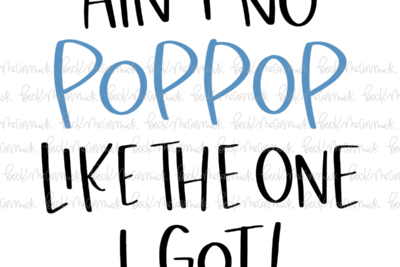 AIN'T NO
POPPOP
LIKE THE ONE
I GOT!